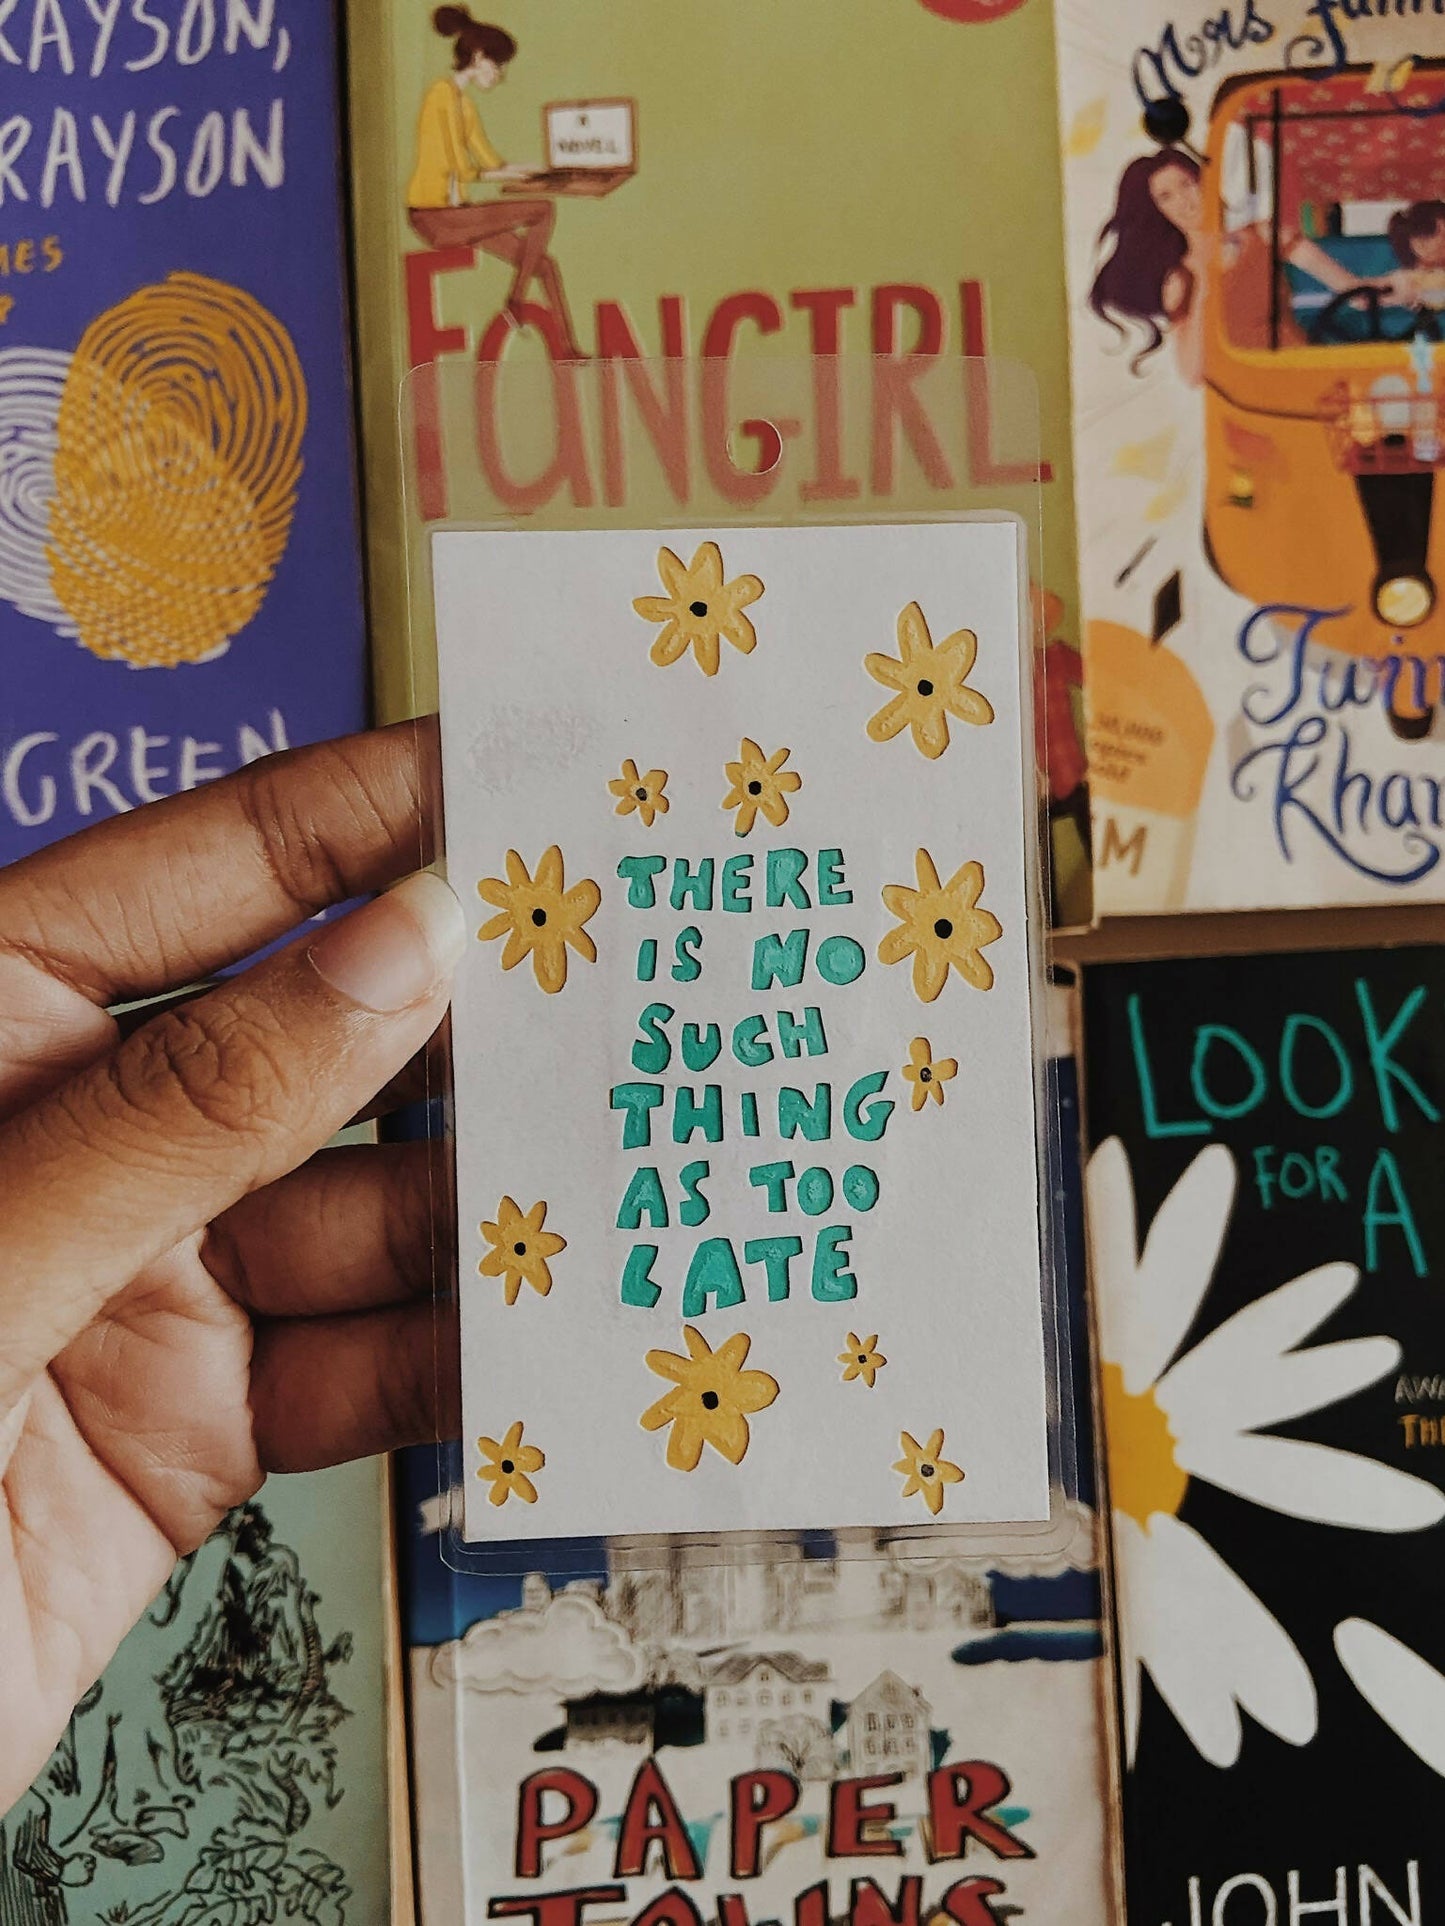 RAYSON,
RAYSON
GREEN
A
NOVEL
FANGIRL
Mrs Funn
Twin
Khan
THERE
IS NO
SUCH
THING
AS TOO
LATE
LOOK
FOR A
THE
JOHN
PAPER
TOWNS